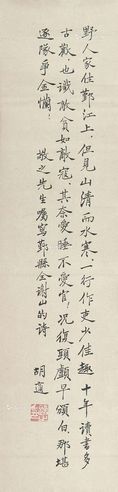 野人家住鄞江上，但見山清而水寒。一行作吏少佳趣，十年讀書多
古歡。也識敵貧如敵寇，其奈愛睡不愛官。況復頭顱早頒白，那堪
逐隊爭金襴！
之先生囑寫鄞縣全謝山的詩
胡適